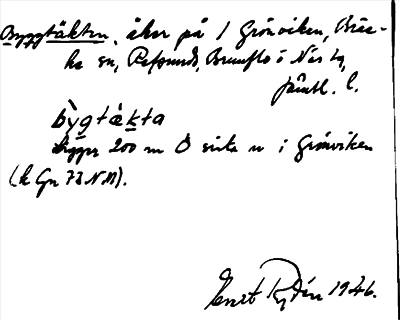 Byggtäkten, åker på 1 Grönviken, Bräc-
ke sn, Refsunds, Brunflo o Näs tg,
Jämtl. l.
bygtäkta
ligger 200 m O sista n i Grönviken
(k Gn 73 NM).
Ernst Rydén 1946.